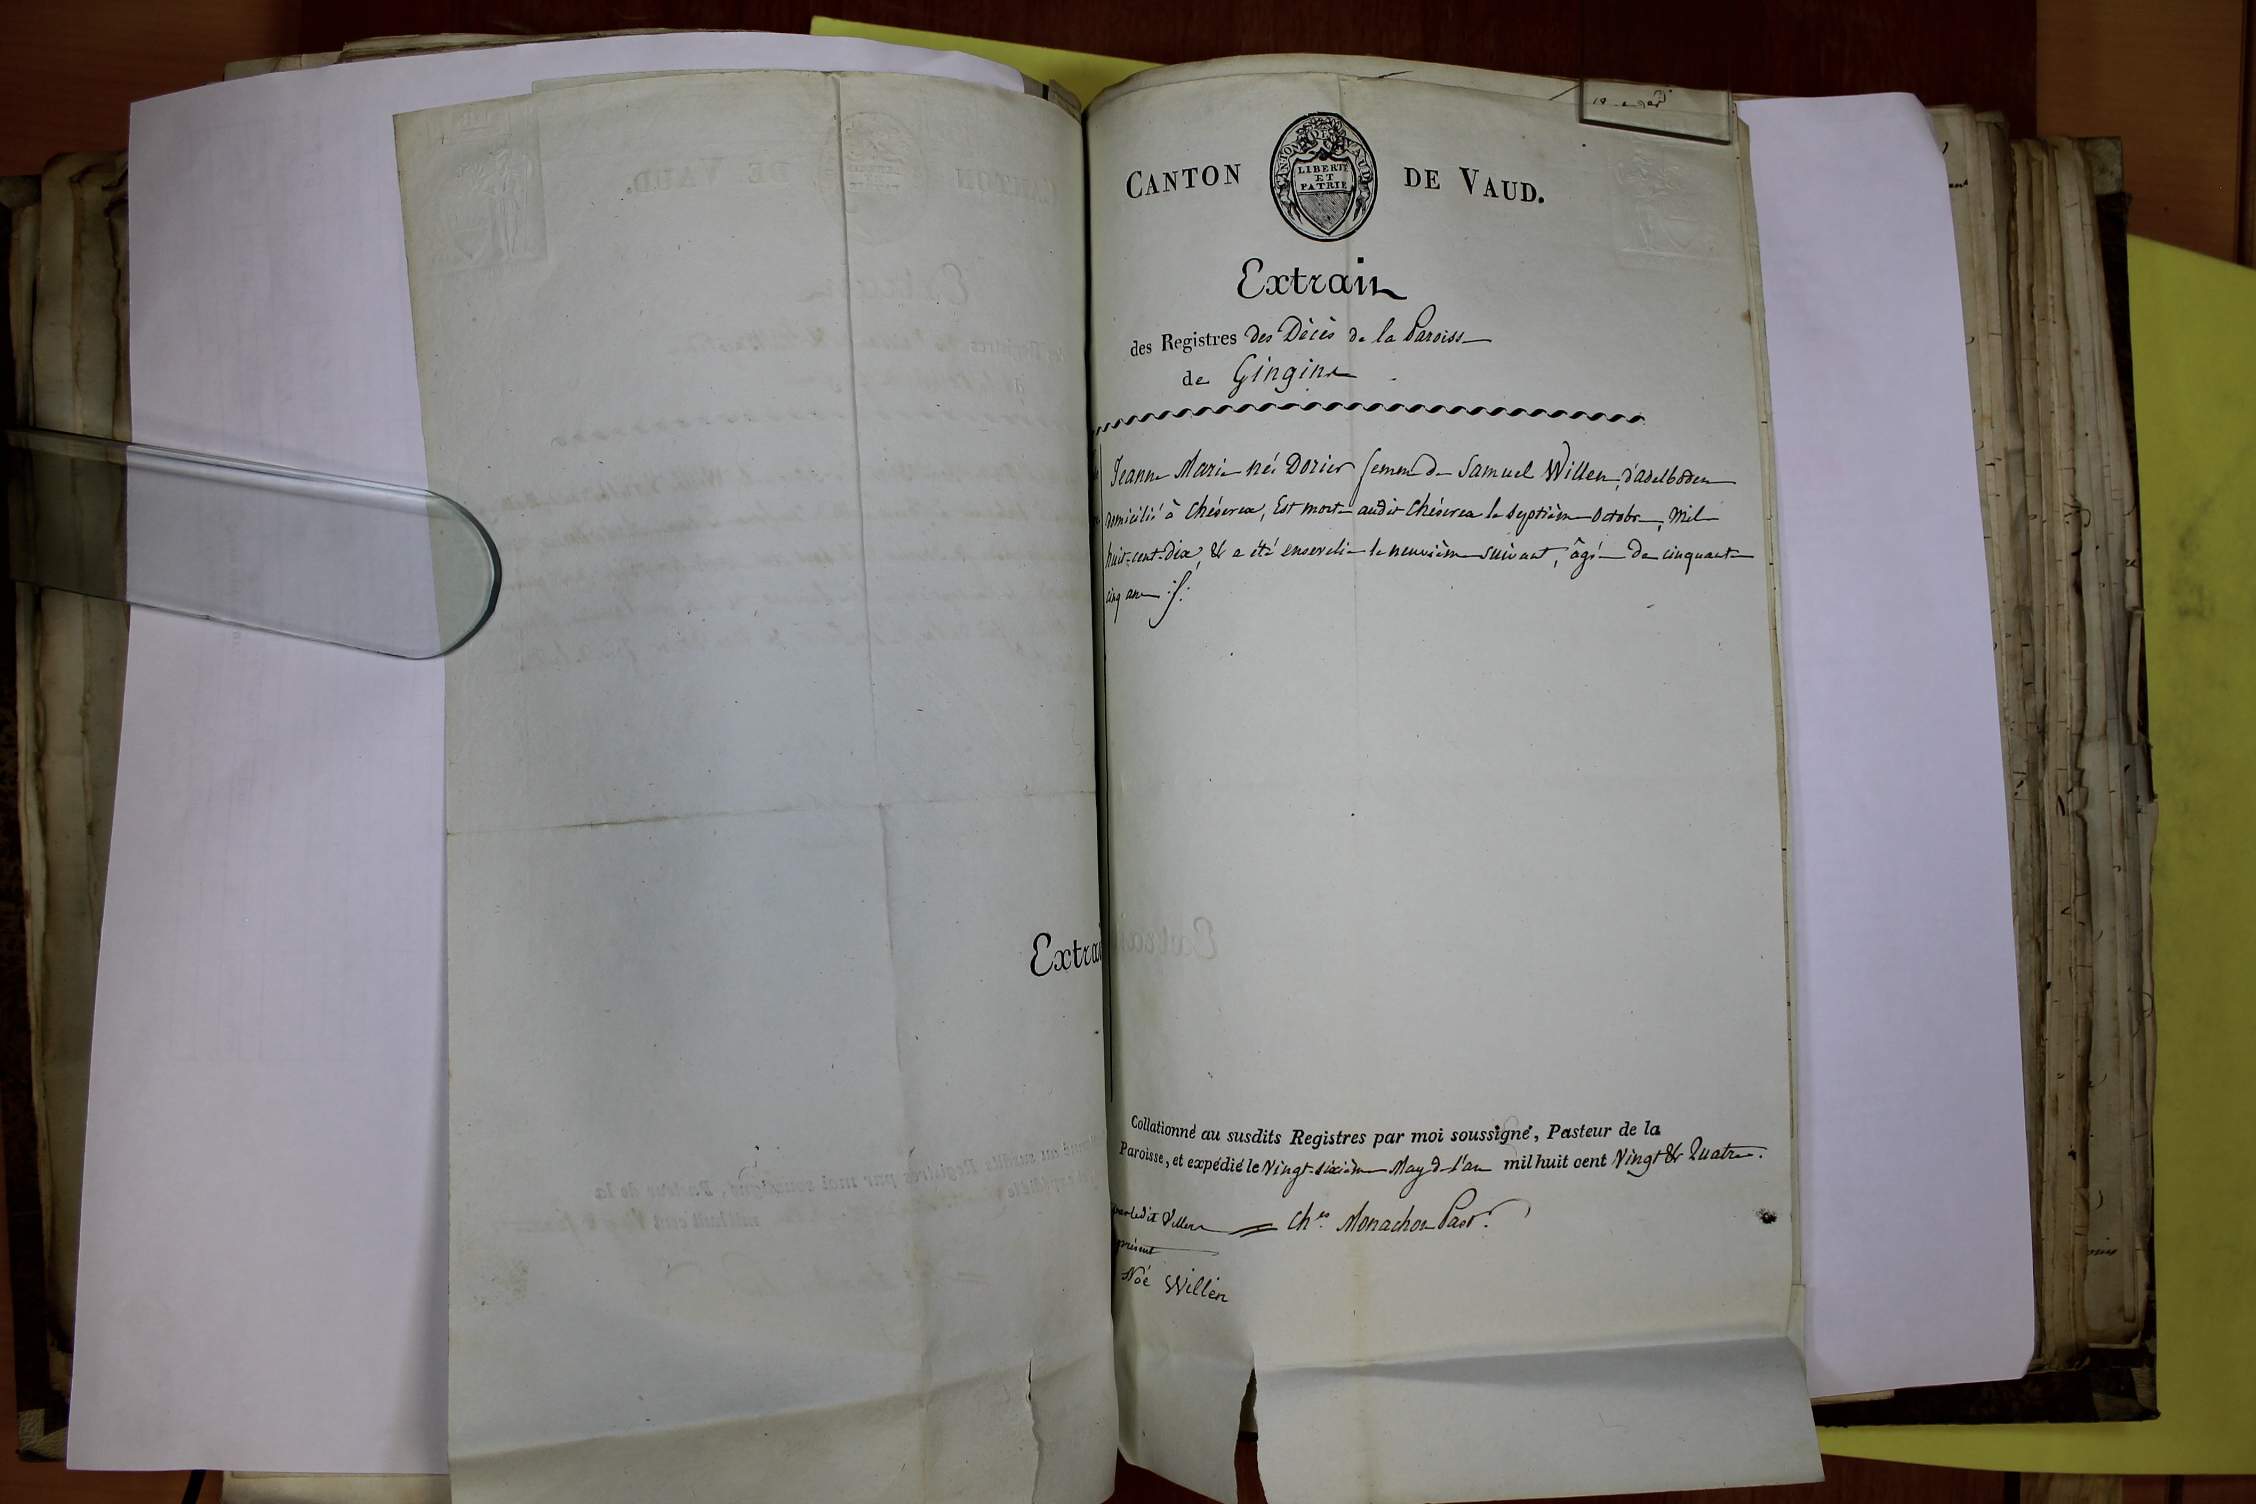 CANTON DE VAUD.
CANTON DE VAUD
LIBERTÉ
ET
PATRIE
Extrait
des Registres des Décès de la Paroisse
de Gingins
Jeanne Marie née Dorier femme de Samuel Willen, d'adelboden
domicilié à Chéserex, Est morte audit Chéserex le septième octobre, mil
huit-cent-dix, & a été ensevelie le neuvième suivant, âgée de cinquante
cinq ans
Extrai
Collationné au susdits Registres par moi soussigné, Pasteur de la
Paroisse, et expédié le Vingt-sixième May de l'an mil huit cent Vingt & Quatre.
par ledit Villen Ch.es Monachon Past.r
présent
Noé Willen